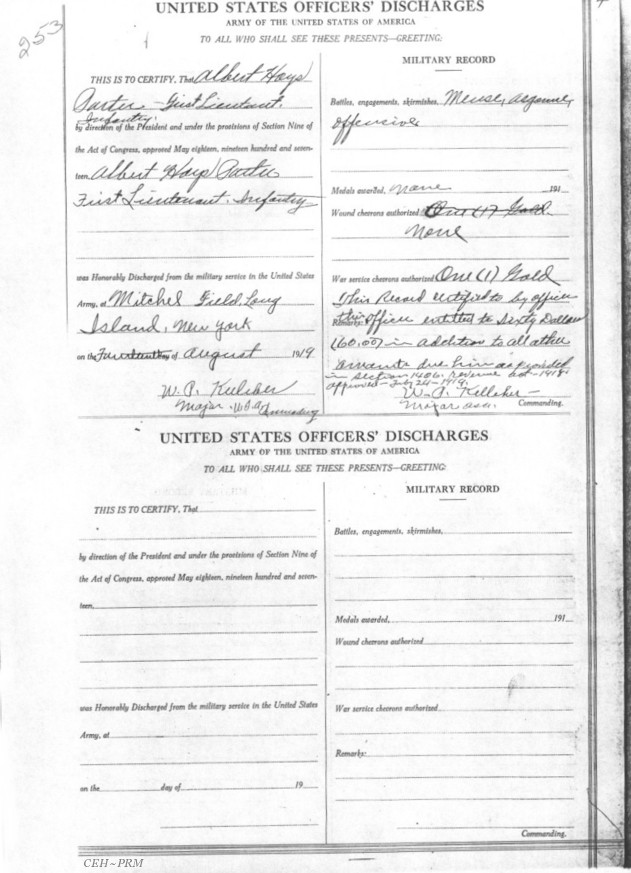 253
UNITED STATES OFFICERS' DISCHARGES
ARMY OF THE UNITED STATES OF AMERICA
TO ALL WHO SHALL SEE THESE PRESENTS—GREETING:
THIS IS TO CERTIFY, That Albert Hays
Porter First Lieutenant,
Infantry.
by direction of the President and under the provisions of Section Nine of
the Act of Congress, approved May eighteen, nineteen hundred and seven-
teen, Albert Hays Porter
First Lieutenant. Infantry
was Honorably Discharged from the military service in the United States
Army, at Mitchel Field Long
Island, New York
on the Fourteenth of August 1919
W. P. Kelleher
Major, U.S.A.
MILITARY RECORD
Battles, engagements, skirmishes, Meuse, Argonne,
offensive
Medals awarded, none 191
Wound chevrons authorized One (1) Gold.
None
War service chevrons authorized One (1) Gold
This Record certified to by officer
Remarks: this officer entitled to Sixty Dollars
(60.00) in addition to all other
amounts due him as provided
in section 1406. revenue act-1918.
approved- Feby 24-1919.
W. P. Kelleher-
Major
Commanding.
UNITED STATES OFFICERS' DISCHARGES
ARMY OF THE UNITED STATES OF AMERICA
TO ALL WHO SHALL SEE THESE PRESENTS—GREETING:
THIS IS TO CERTIFY, That
by direction of the President and under the provisions of Section Nine of
the Act of Congress, approved May eighteen, nineteen hundred and seven-
teen,
was Honorably Discharged from the military service in the United States
Army, at
on the day of 19
MILITARY RECORD
Battles, engagements, skirmishes,
Medals awarded, 191
Wound chevrons authorized
War service chevrons authorized
Remarks:
Commanding.
CEH~PRM